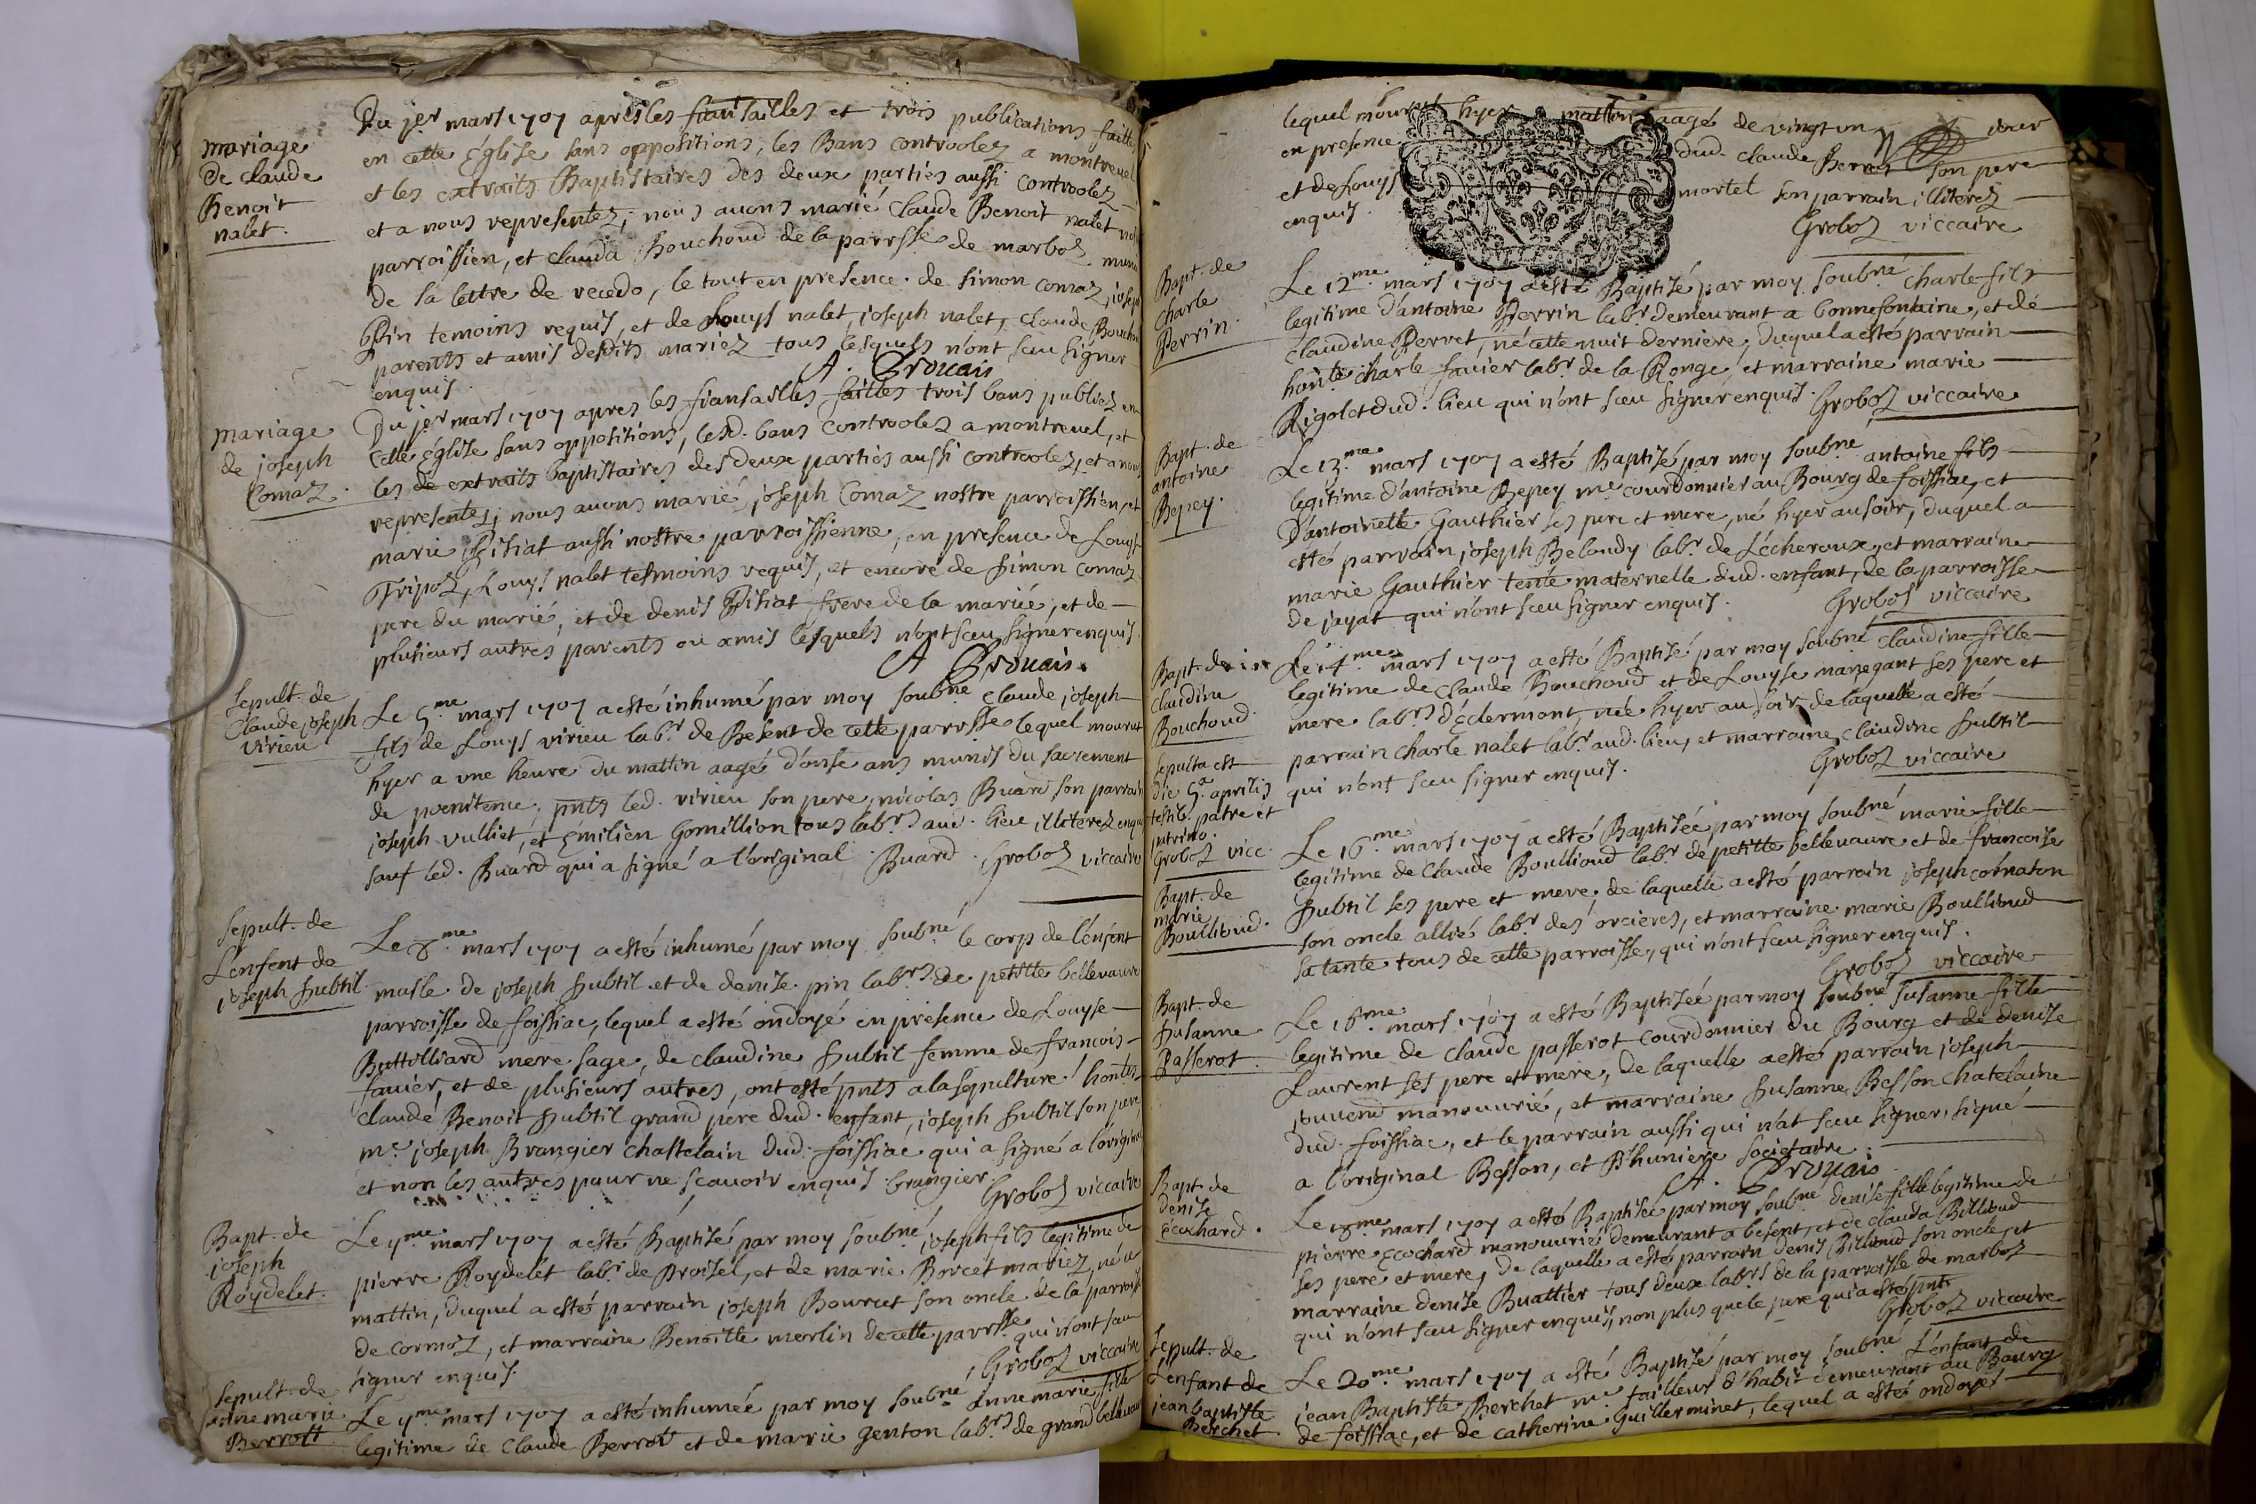 mariage
de claude
Benoit
nalet.
Du jer mars 1707 apres les fiansailles et trois publications faitte
en cette Église sans oppositions, les Bans controolez a montreuel
et les extraits Baptistaires des deux parties aussi controolez
et a nous representez; nous auons marié Claude Benoit nalet
parroissien, et clauda Bouchoud de la parrsse de marboz
de sa lettre de recedo, le tout en presence de simon comaz, joseph
pin temoins requis, et de Louys nalet, joseph nalet, claude Bouchou
parents et amis desdits mariez tous lesquels n'ont sceu signer
enquis.
A. Brouais
mariage
de joseph
Comaz.
Du jer mars 1707 apres les fiansailles faittes trois bans publiez en
cette église sans oppositions, lesd. bans controolez a montreuel, et
les de extraits baptistaires des deux parties aussi controolez, et a nous
representez; nous auons marié joseph Comaz nostre parroissien, et
marie Pitiat aussi nostre parroissienne, en presence de Louys
Tripoz, Louys nalet tesmoins requis, et encore de simon comaz
pere du marié, et de denis Pitiat frere de la mariée, et de
plusieurs autres parents ou amis lesquels n'ont sceu signer enquis.
A Brouais.
sepult. de
Claude joseph
virieu
Le 5.me mars 1707 a esté inhumé par moy soubné claude joseph
fils de Louys virieu labr. de Besent de cette parrsse lequel mourut
hyer a vne heure du mattin aagé d'onse ans munis du sacrement
de pœnitence, pnts led. virieu son pere, nicolas Buard son parrain
joseph vulliet, et Emilien Gomillion tous labrs aud. lieu illiterez enquis
sauf led. Buard qui a signé a l'original. Buard. Groboz viccaire
sepult. de
L'enfent de
joseph subtil.
Le 8.me mars 1707 a esté inhumé par moy soubné le corp de l'enfent
masle de joseph subtil et de denise pin labrs de petitte belleuaure
parroisse de foissiac, lequel a esté ondoyé en presence de Louyse
Buttilliard mere sage, de claudine subtil femme de francois
fauier, et de plusieurs autres, ont esté pnts a la sepulture honte
Claude Benoit subtil grand pere dud. enfant, joseph subtil son pere
me. joseph Brangier chastelain dud. foissiac qui a signé a l'origina
et non les autres pour ne scauoir enquis. brangier.
Groboz viccaire
Bapt. de
joseph
Roydelet.
Le 9me. mars 1707 a esté Baptisé par moy soubné joseph fils legitime de
pierre Roydelet labr. de Proisel, et de marie Borcet mariez, né ce
mattin, duquel a esté parrain joseph Bourcet son oncle de la parroiss
de cormoz, et marraine Benoitte merlin de cette parrsse qui n'ont sceu
signer enquis.
Groboz viccaire
sepult. de
anne marie
Berrott
Le 9me. mars 1707 a esté inhumée par moy soubné Anne marie fille
legitime de Claude Berrot et de marie genton labrs de grand belleuaur
lequel mourut hyer mattin aagé de vingt un jour
en presence dud. claude Berrot son pere
et de Louys martel son parrain illiterez
enquis.
Groboz viccaire
Bapt. de
Charle
Perrin.
Le 12.me mars 1707 a esté Baptisé par moy soubné charle fils
legitime d'antoine Perrin labr. demeurant a bonnefontaine, et de
claudine Perret, né cette nuit derniere, duquel a esté parrain
honte charle fauier labr. de la Ronge, et marraine marie
Rigolet dud. lieu qui n'ont sceu signer enquis. Groboz viccaire
Bapt. de
antoine
Bepey.
Le 13.me mars 1707 a esté Baptisé par moy soubné antoine fils
legitime d'antoine Bepey me. courdonnier au Bourg de foissiac, et
D'antoinette Gauthier ses pere et mere, né hyer au soir, duquel a
esté parrain joseph Beloudy labr. de Lécheroux, et marraine
marie Gauthier tente maternelle dud. enfant, de la parroisse
de jayat qui n'ont sceu signer enquis.
Groboz viccaire
Bapt. de
claudine
Bouchoud.
Le 14.me mars 1707 a esté Baptisé par moy soubné claudine fille
legitime de claude Bouchoud et de Louyse manegant ses pere et
mere labrs d'Eclermont, née hyer au soir de laquelle a esté
parrain charle nalet labr. aud. lieu, et marraine claudine subtil
qui n'ont sceu signer enquis.
Groboz viccaire
sepulta est
die 5.a aprilis
testib. patre et
patrino.
Groboz vicc.
Bapt. de
marie
Boullioud.
Le 16.me mars 1707 a esté Baptisée par moy soubné marie fille
legitime de Claude Boullioud labr. de petitte belleuaure et de francoise
subtil ses pere et mere, de laquelle a esté parrain joseph cornaton
son oncle allié labr. des orcieres, et marraine marie Boullioud
sa tante tous de cette parroisse, qui n'ont sceu signer enquis.
Groboz viccaire
Bapt. de
susanne
Passerot.
Le 16me. mars 1707 a esté Baptisée par moy soubné susanne fille
legitime de claude passerot courdonnier du Bourg et de denise
Laurent ses pere et mere, de laquelle a esté parrain joseph
jouuend manouurié, et marraine susanne Besson chatelaine
dud. foissiac, et le parrain aussi qui n'at sceu signer, signé
a l'original Besson, et P'huniere societaire.
A. Brouais
Bapt. de
denise
écochard.
Le 18me. mars 1707 a esté Baptisée par moy soubné denise fille legitime de
pierre Ecochard manouurié demeurant a besent, et de clauda Billioud
ses pere et mere, de laquelle a esté parrain denis Billioud son oncle, et
marraine denise Buattier tous deux labrs de la parroisse de marboz
qui n'ont sceu signer enquis, non plus que le pere qui a esté pnt.
Groboz viccaire
sepult. de
L'enfant de
jean baptiste
Berchet
Le 20me. mars 1707 a esté Baptisé par moy soubné L'enfant de
jean Baptiste Berchet me. tailleur d'habit demeurant au Bourg
de foissiac, et de catherine Guillerminet, lequel a esté ondoyé